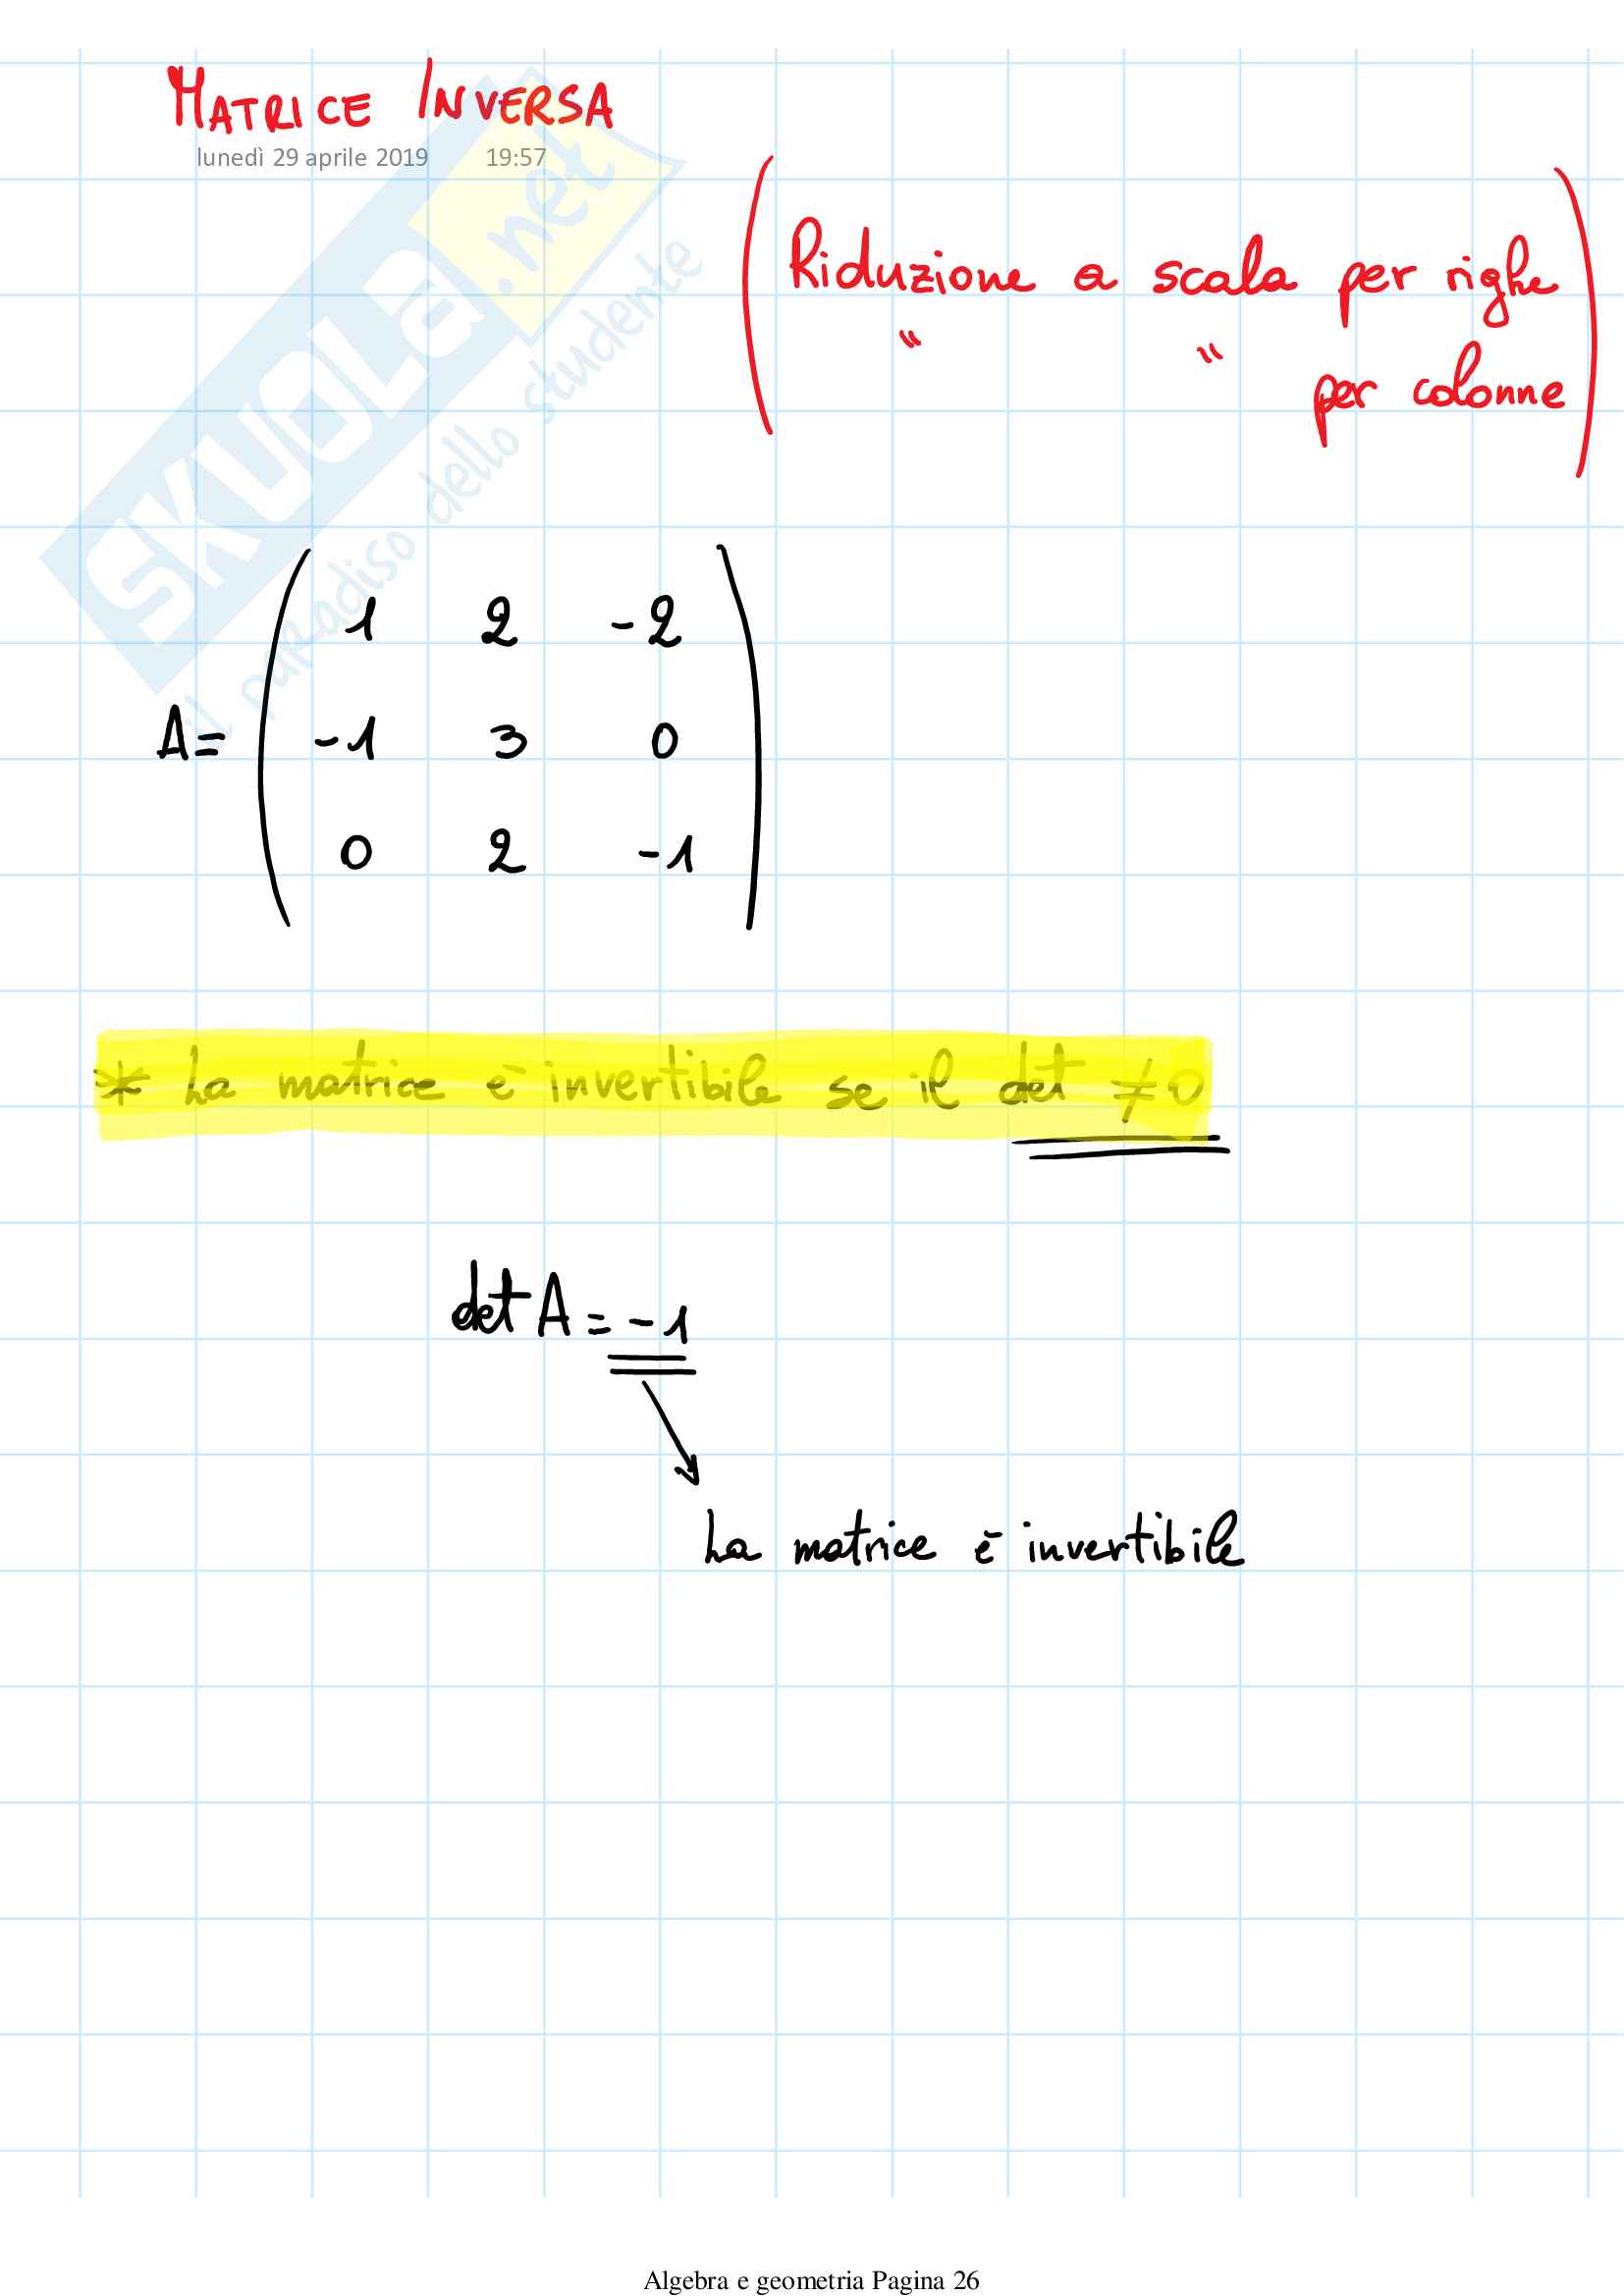 MATRICE INVERSA
lunedì 29 aprile 2019 19:57
SKUOLA.net
il paradiso dello studente
( Riduzione a scala per righe )
" "
per colonne
1 2 -2
A= -1 3 0
0 2 -1
* La matrice è invertibile se il det ≠0
det A = -1
La matrice è invertibile
Algebra e geometria Pagina 26